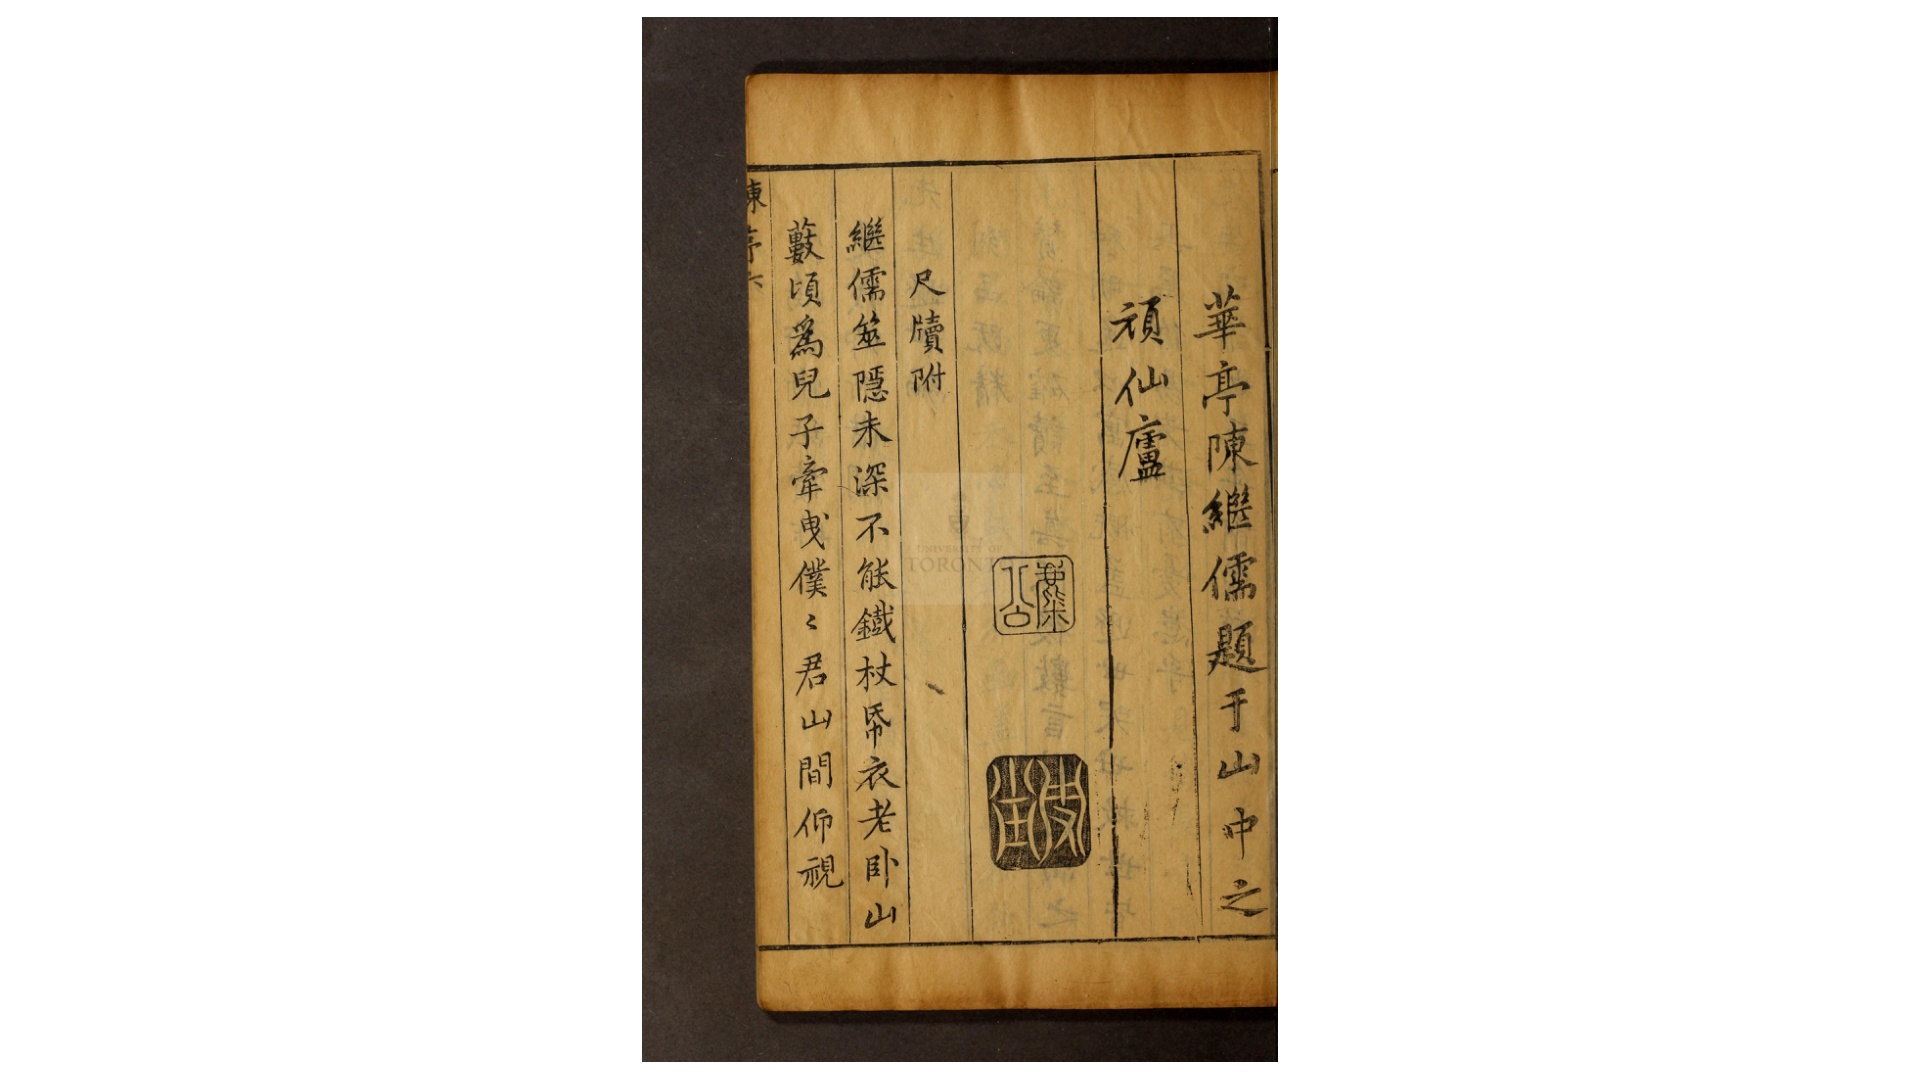 華亭陳繼儒題于山中之
頑仙廬
尺牘附
繼儒筮隱未深不能鐵杖帋衣老卧山
藪頃為兒子牽曳僕〻君山間仰視
陳序六
UNIVERSITY OF
TORONTO